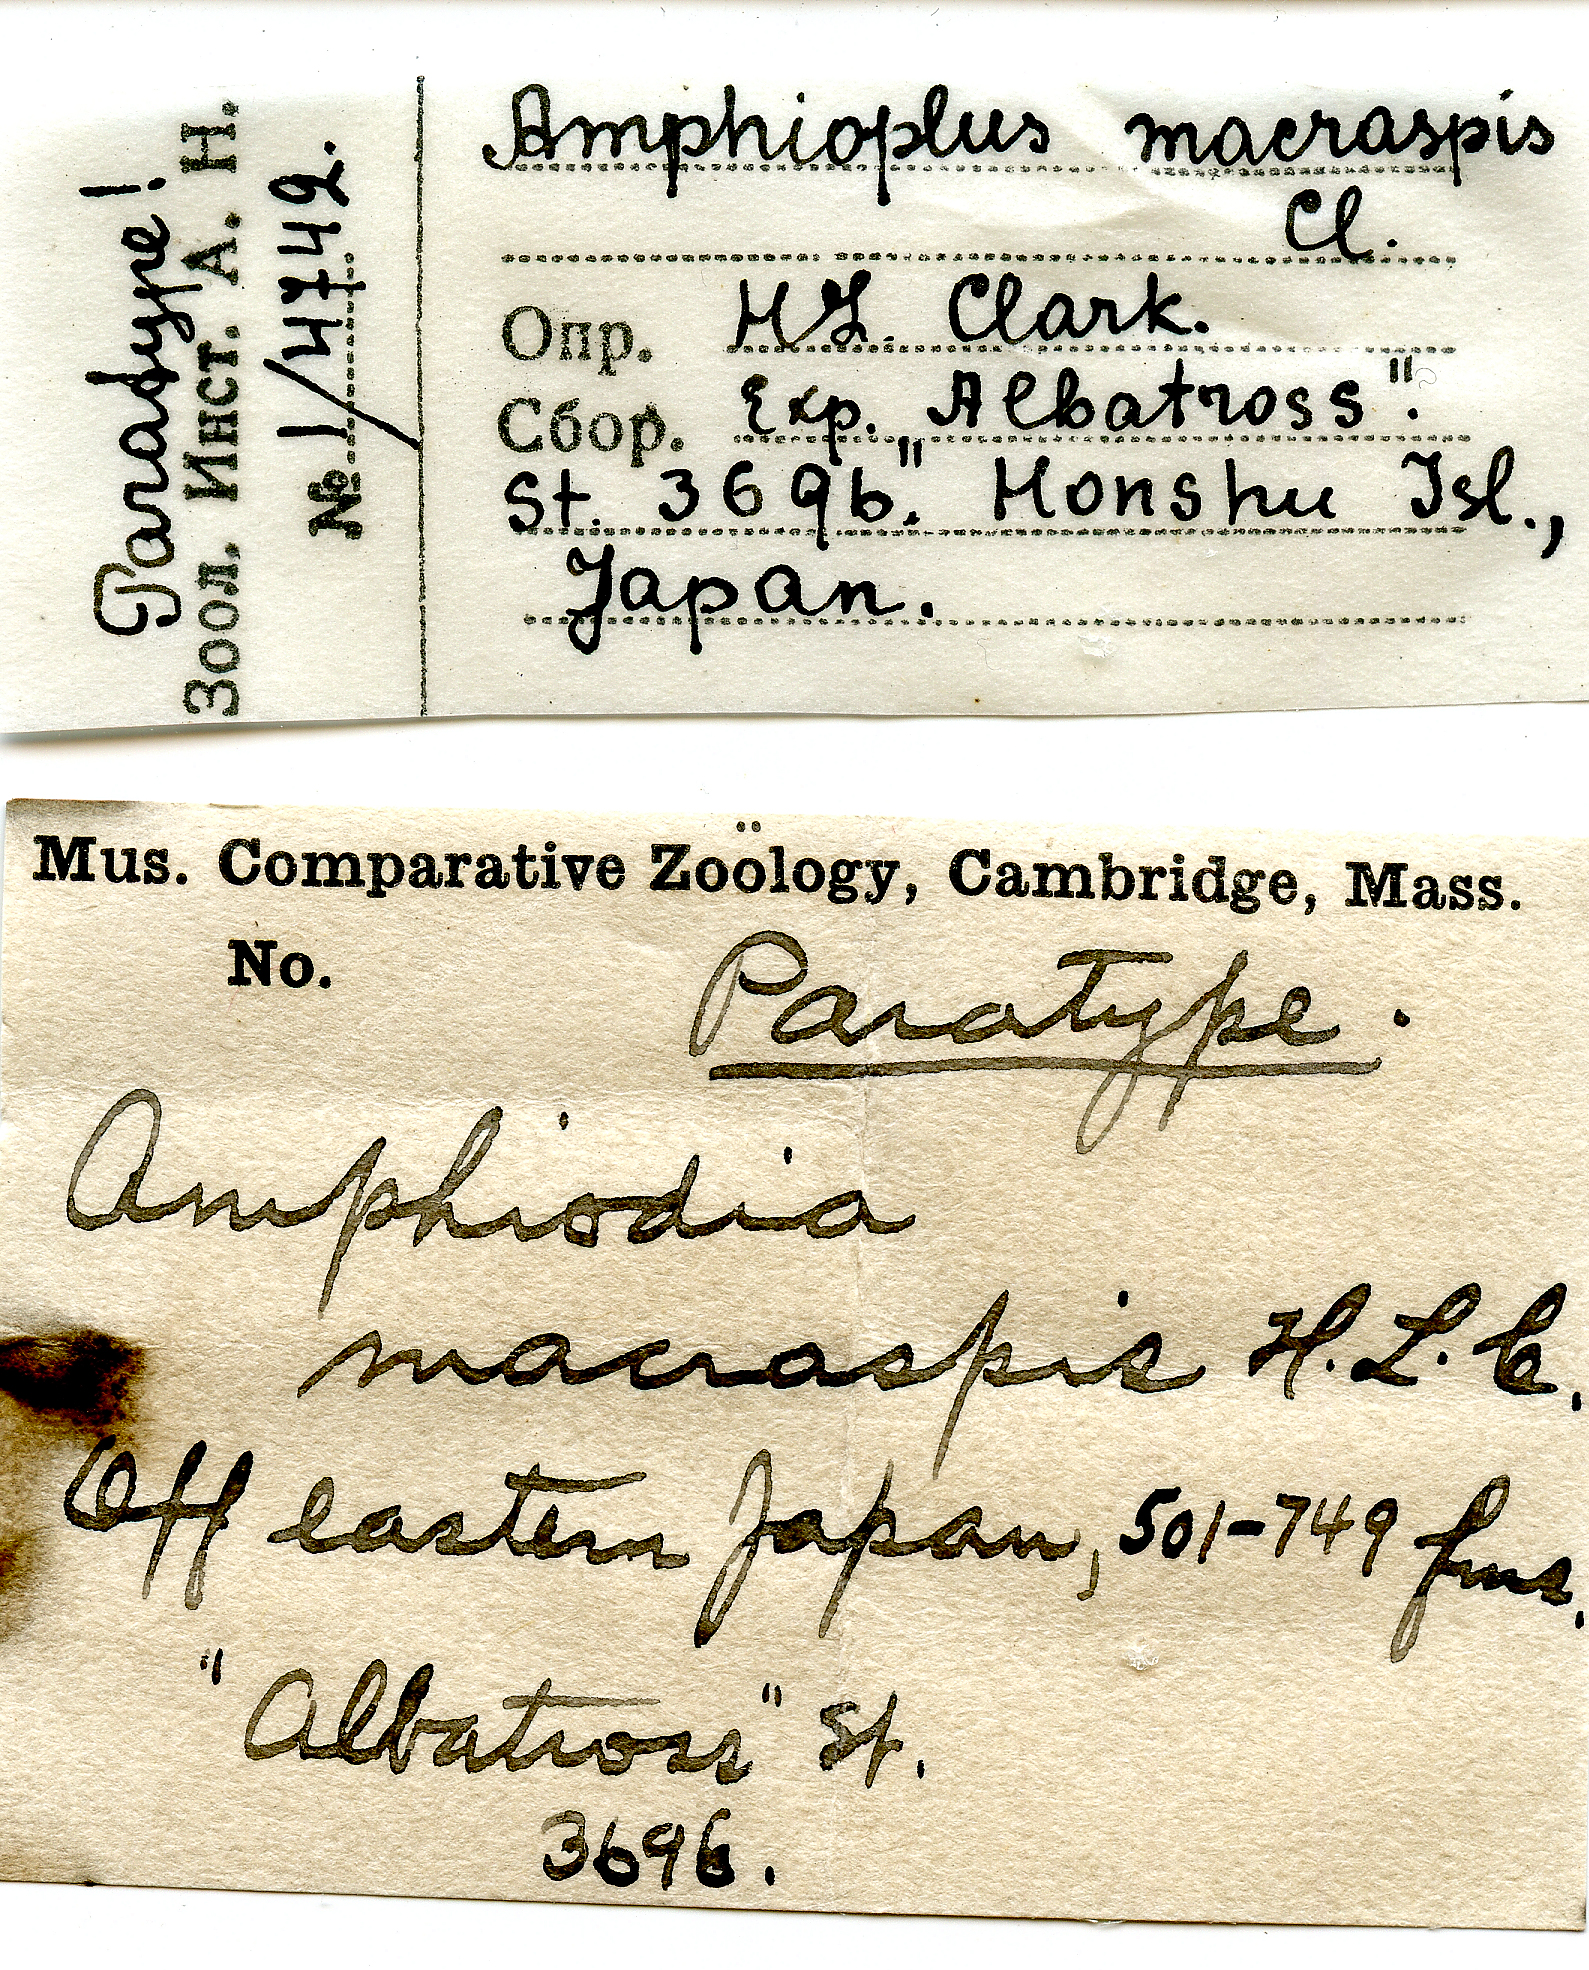 Paratype!
Зоол. Инст. А. Н.
№ 1/4742.
Amphioplus macraspis
Cl.
Опр. H.L. Clark.
Сбор. Exp. „Albatross".
St. 3696." Honshu Isl.,
Japan.
Mus. Comparative Zoölogy, Cambridge, Mass.
No.
Paratype.
Amphiodia
macraspis H. L. C.
Off eastern Japan, 501-749 fms.
"Albatross" St.
3696.